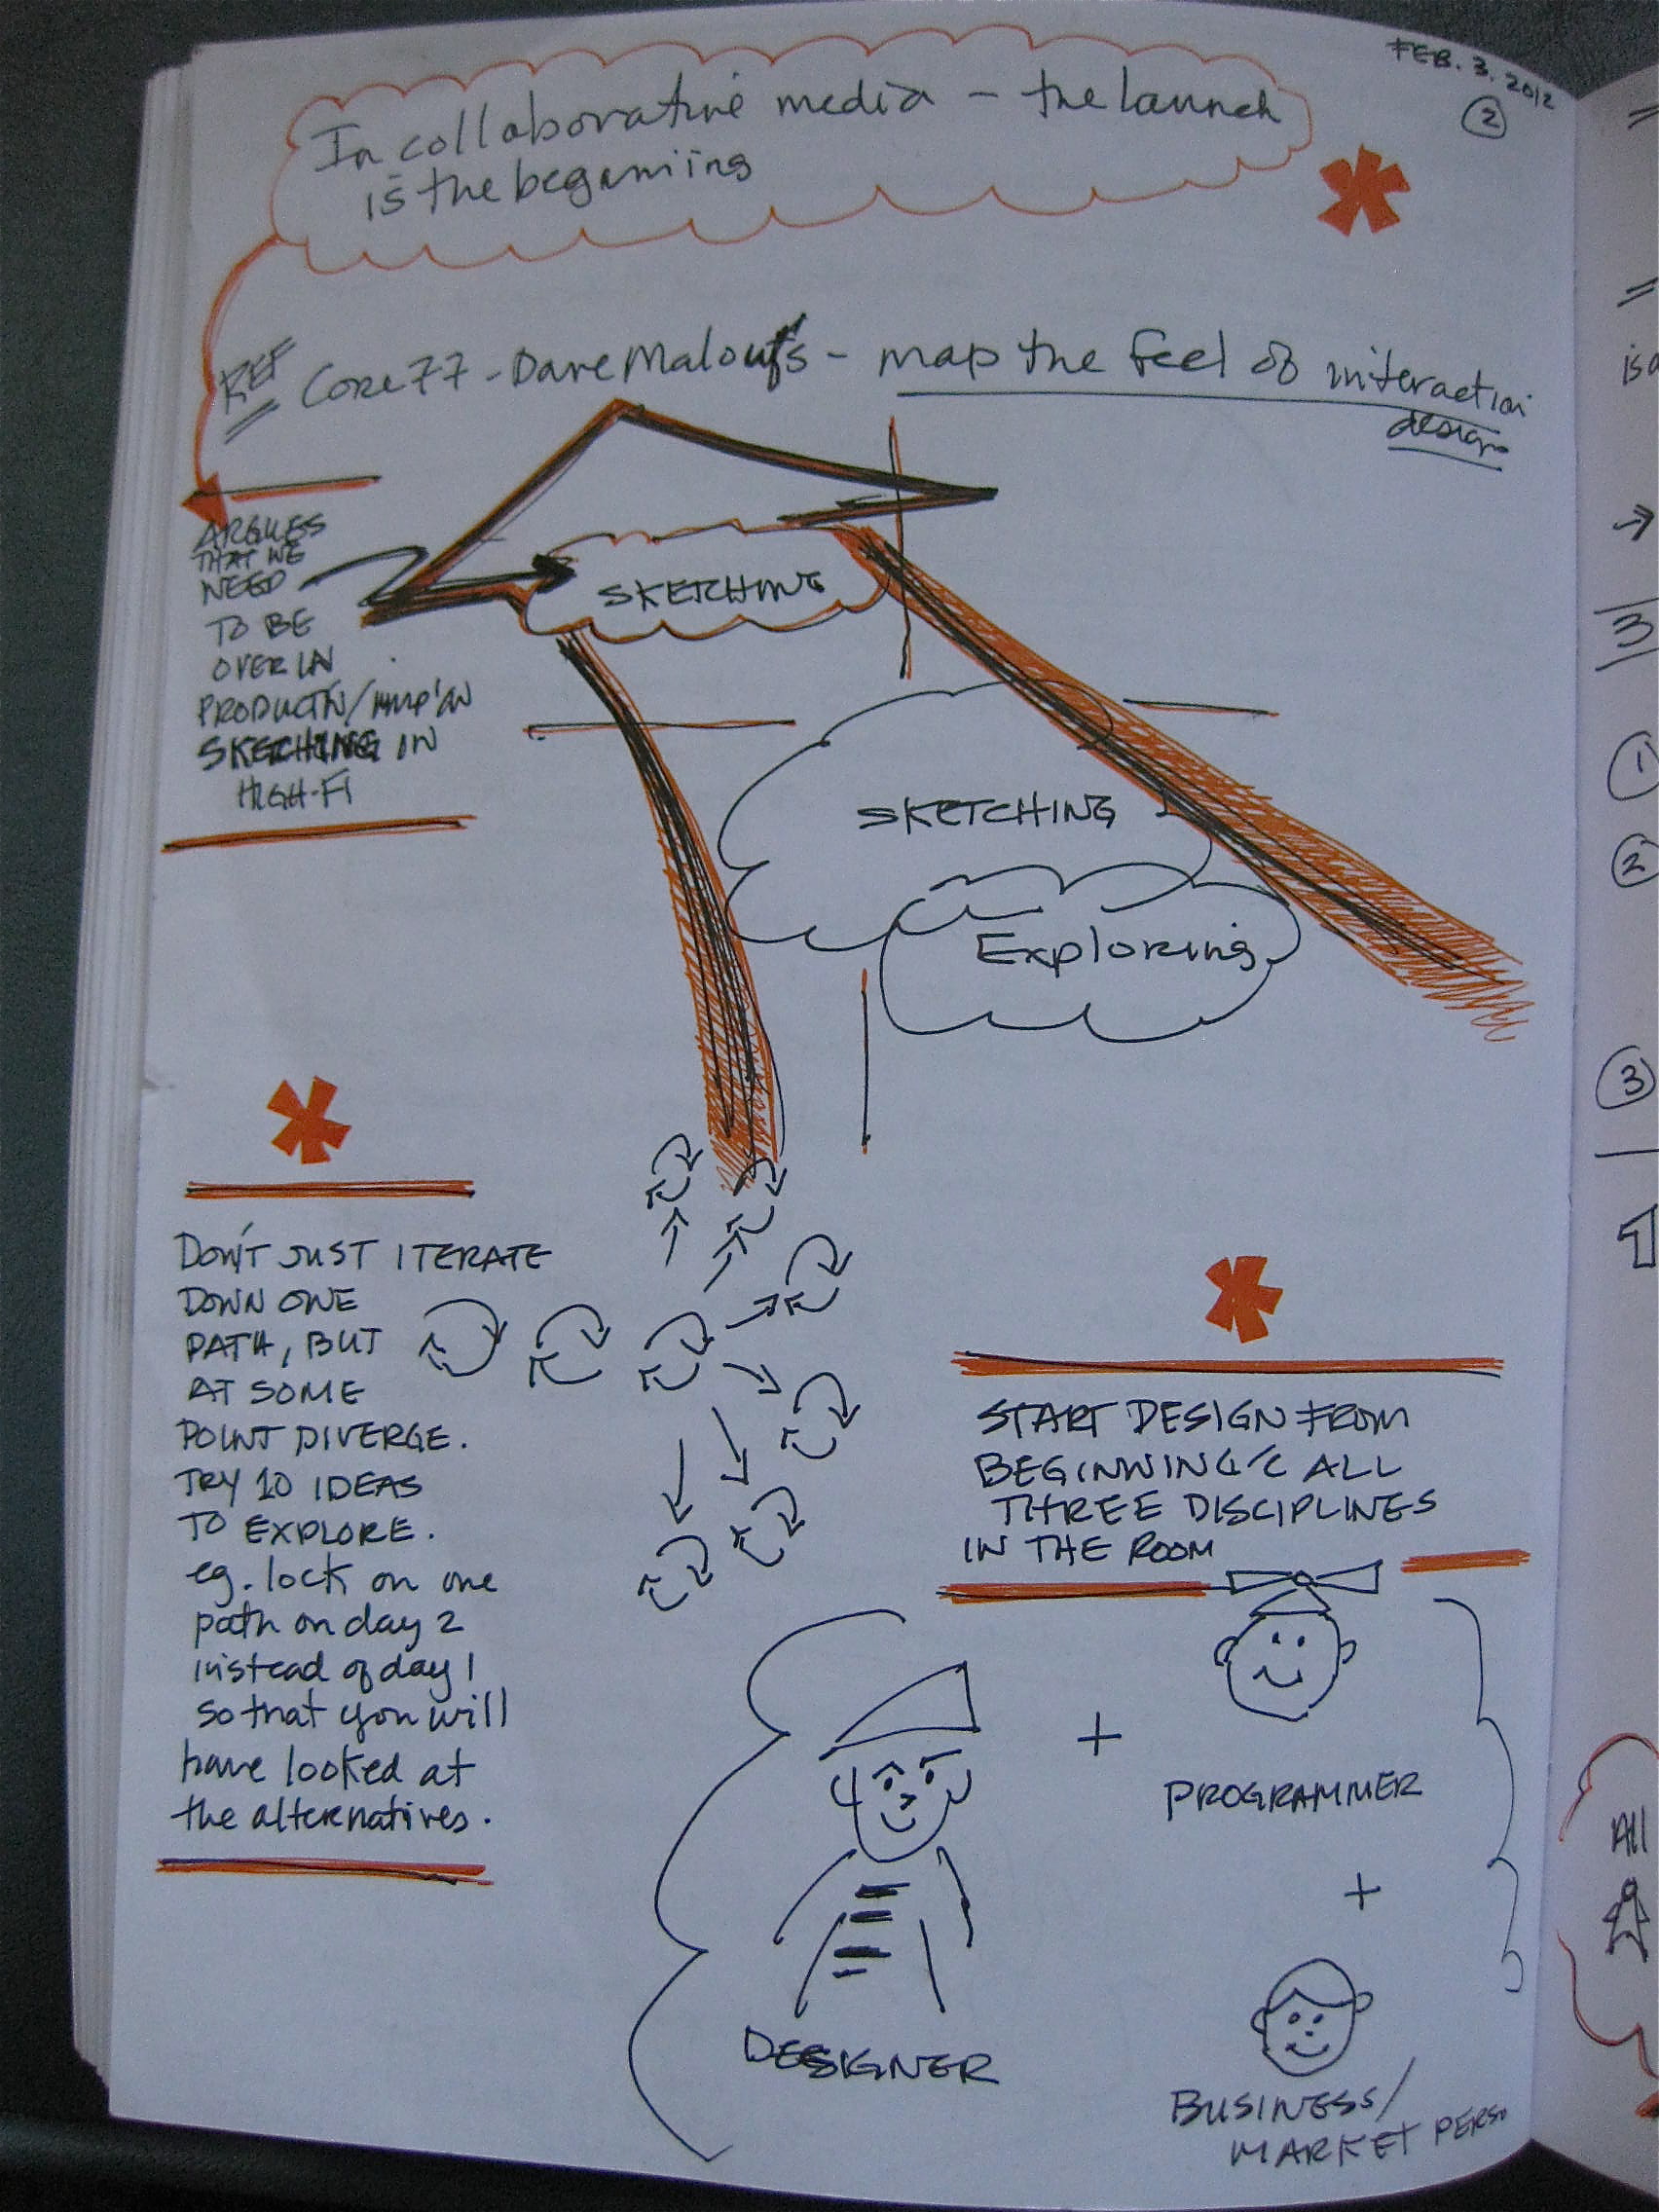 FEB. 3. 2012
2
In collaborative media - the launch
is the beganiing
REF Core 77 - Dave Malouf's - map the feel of interaction
design
ARGUES
THAT WE
NEED
TO BE
OVER IN
PRODUCT'N/IMP'N
SKETCHING IN
HIGH-FI
SKETCHING
SKETCHING
Exploring
DON'T JUST ITERATE
DOWN ONE
PATH, BUT
AT SOME
POINT DIVERGE.
TRY 10 IDEAS
TO EXPLORE.
eg. lock on one
path on day 2
instead of day 1
so that you will
have looked at
the alternatives.
START DESIGN FROM
BEGINNING C ALL
THREE DISCIPLINES
IN THE ROOM
+
PROGRAMMER
+
DESIGNER
BUSINESS/
MARKET PERSO
is a
3
1
2
3
All